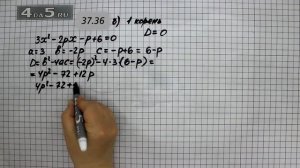 4DA5.RU
37.36 в) 1 корень
D=0
3x² - 2px - p + 6 = 0
a = 3 b = -2p c = -p+6 = 6-p
D = b² - 4ac = (-2p)² - 4·3·(6-p) =
= 4p² - 72 + 12p
4p² - 72 +